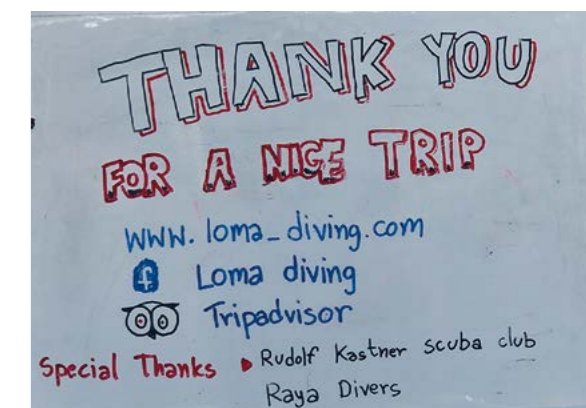 THANK YOU
FOR A NICE TRIP
WWW.loma_diving.com
f Loma diving
Tripadvisor
Special Thanks ▶ Rudolf Kastner scuba club
Raya Divers